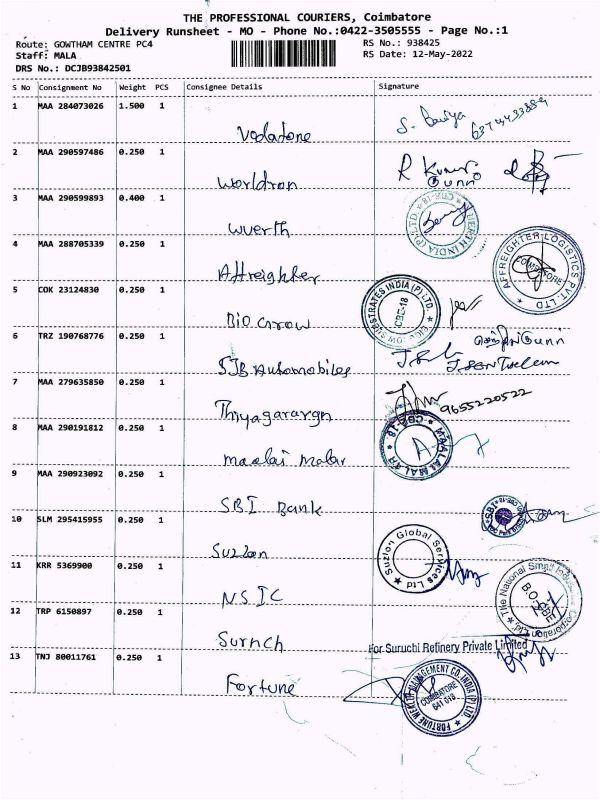 THE PROFESSIONAL COURIERS, Coimbatore
Delivery Runsheet - MO - Phone No.:0422-3505555 - Page No.:1
Route: GOWTHAM CENTRE PC4
RS No.: 938425
Staff: MALA
RS Date: 12-May-2022
DRS No.: DCJB93842501
S No Consignment No Weight PCS Consignee Details Signature
1 MAA 284073026 1.500 1 Vodafone S.
2 MAA 290597486 0.250 1 Worldron R Kumar
3 MAA 290599893 0.400 1 Wuerth
4 MAA 288705339 0.250 1 Affreighter AFFREIGHTER LOGISTICS PVT. LTD COIMBATORE
5 COK 23124830 0.250 1 Bio Grow SUBSTRATES INDIA (P) LTD. CBE-18
6 TRZ 190768776 0.250 1 SJB Automobiles
7 MAA 279635850 0.250 1 Thiyagarargn 9655220522
8 MAA 290191812 0.250 1 Maalai Malar MAALAI MALAR CBE-18
9 MAA 290923092 0.250 1 SBI Bank SBI
10 SLM 295415955 0.250 1 Suzlon Suzlon Global Services Ltd
11 KRR 5369900 0.250 1 NSIC The National Small Industries Corporation Ltd
12 TRP 6150897 0.250 1 Suruch For Suruchi Refinery Private Limited
13 TNJ 80011761 0.250 1 Fortune FORTUNE WEALTH MANAGEMENT CO. INDIA (P) LTD. COIMBATORE 641 018